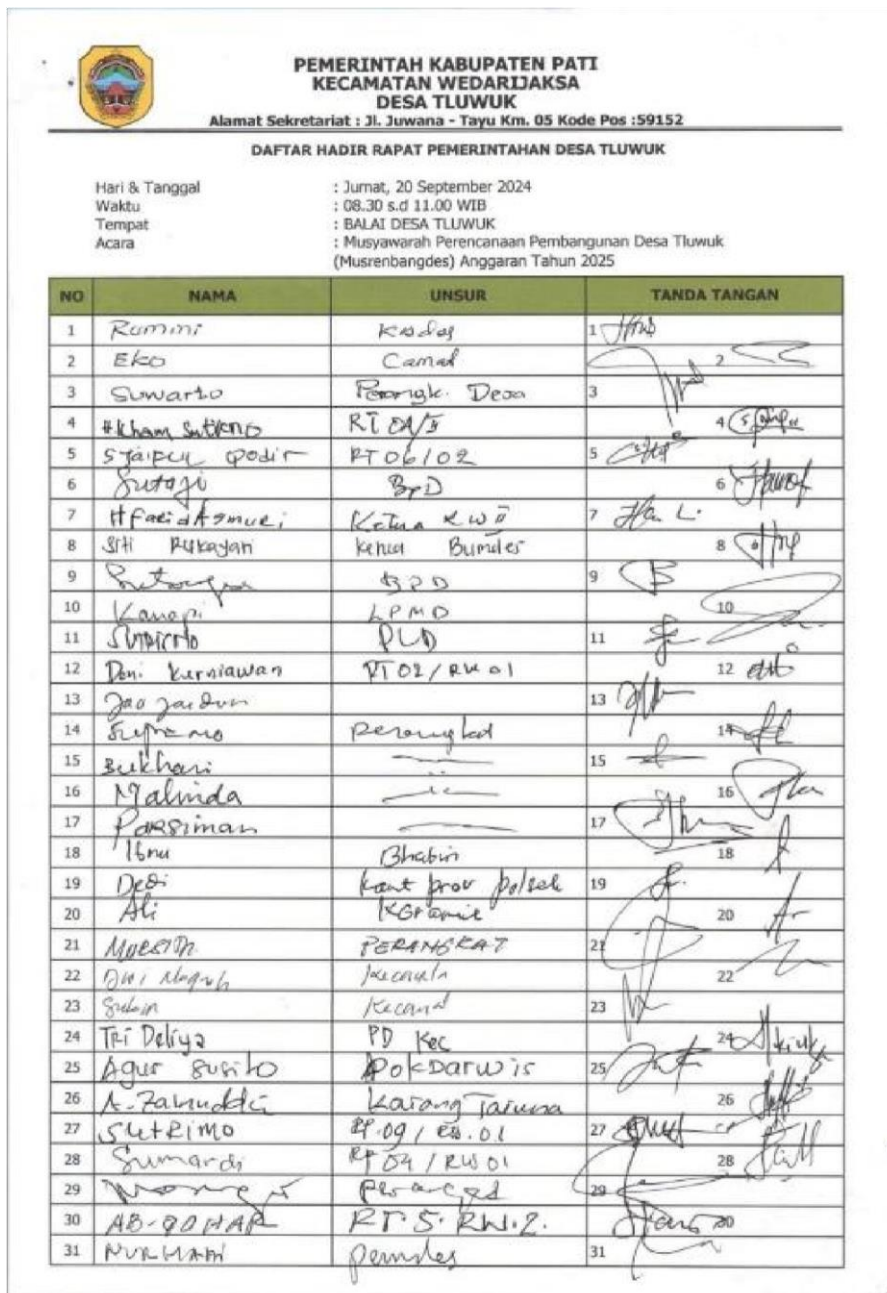 PEMERINTAH KABUPATEN PATI
KECAMATAN WEDARIJAKSA
DESA TLUWUK
Alamat Sekretariat : Jl. Juwana - Tayu Km. 05 Kode Pos :59152
DAFTAR HADIR RAPAT PEMERINTAHAN DESA TLUWUK
Hari & Tanggal : Jumat, 20 September 2024
Waktu : 08.30 s.d 11.00 WIB
Tempat : BALAI DESA TLUWUK
Acara : Musyawarah Perencanaan Pembangunan Desa Tluwuk
(Musrenbangdes) Anggaran Tahun 2025
NO NAMA UNSUR TANDA TANGAN
1 Rumini Kades 1
2 Eko Camat 2
3 Suwarto Perangk. Desa 3
4 4
5 Qodir RT 06/02 5
6 Sutaji BPD 6
7 H Farid Asmuri Ketua RW II 7
8 Siti Rukayah Ketua Bumdes 8
9 BPD 9
10 Kanapi LPMD 10
11 PLD 11
12 Doni Kurniawan RT 02/RW 01 12
13 13
14 perangkat 14
15 Bukhari 15
16 Malinda 16
17 Parsiman 17
18 Ibnu Bhabin 18
19 Dedi polsek 19
20 Ali Koramil 20
21 PERANGKAT 21
22 22
23 23
24 Tri Deliya PD Kec 24
25 Agus Susilo Pokdarwis 25
26 Karang Taruna 26
27 SUTRIMO 27
28 Sumardi 28
29 29
30 AB-QOHAR RT.5. RW.2. 30
31 pemdes 31